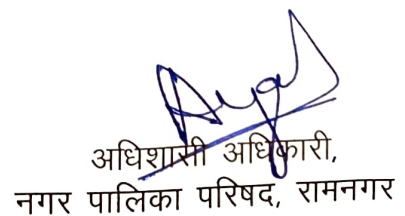 अधिशासी अधिकारी,
नगर पालिका परिषद, रामनगर